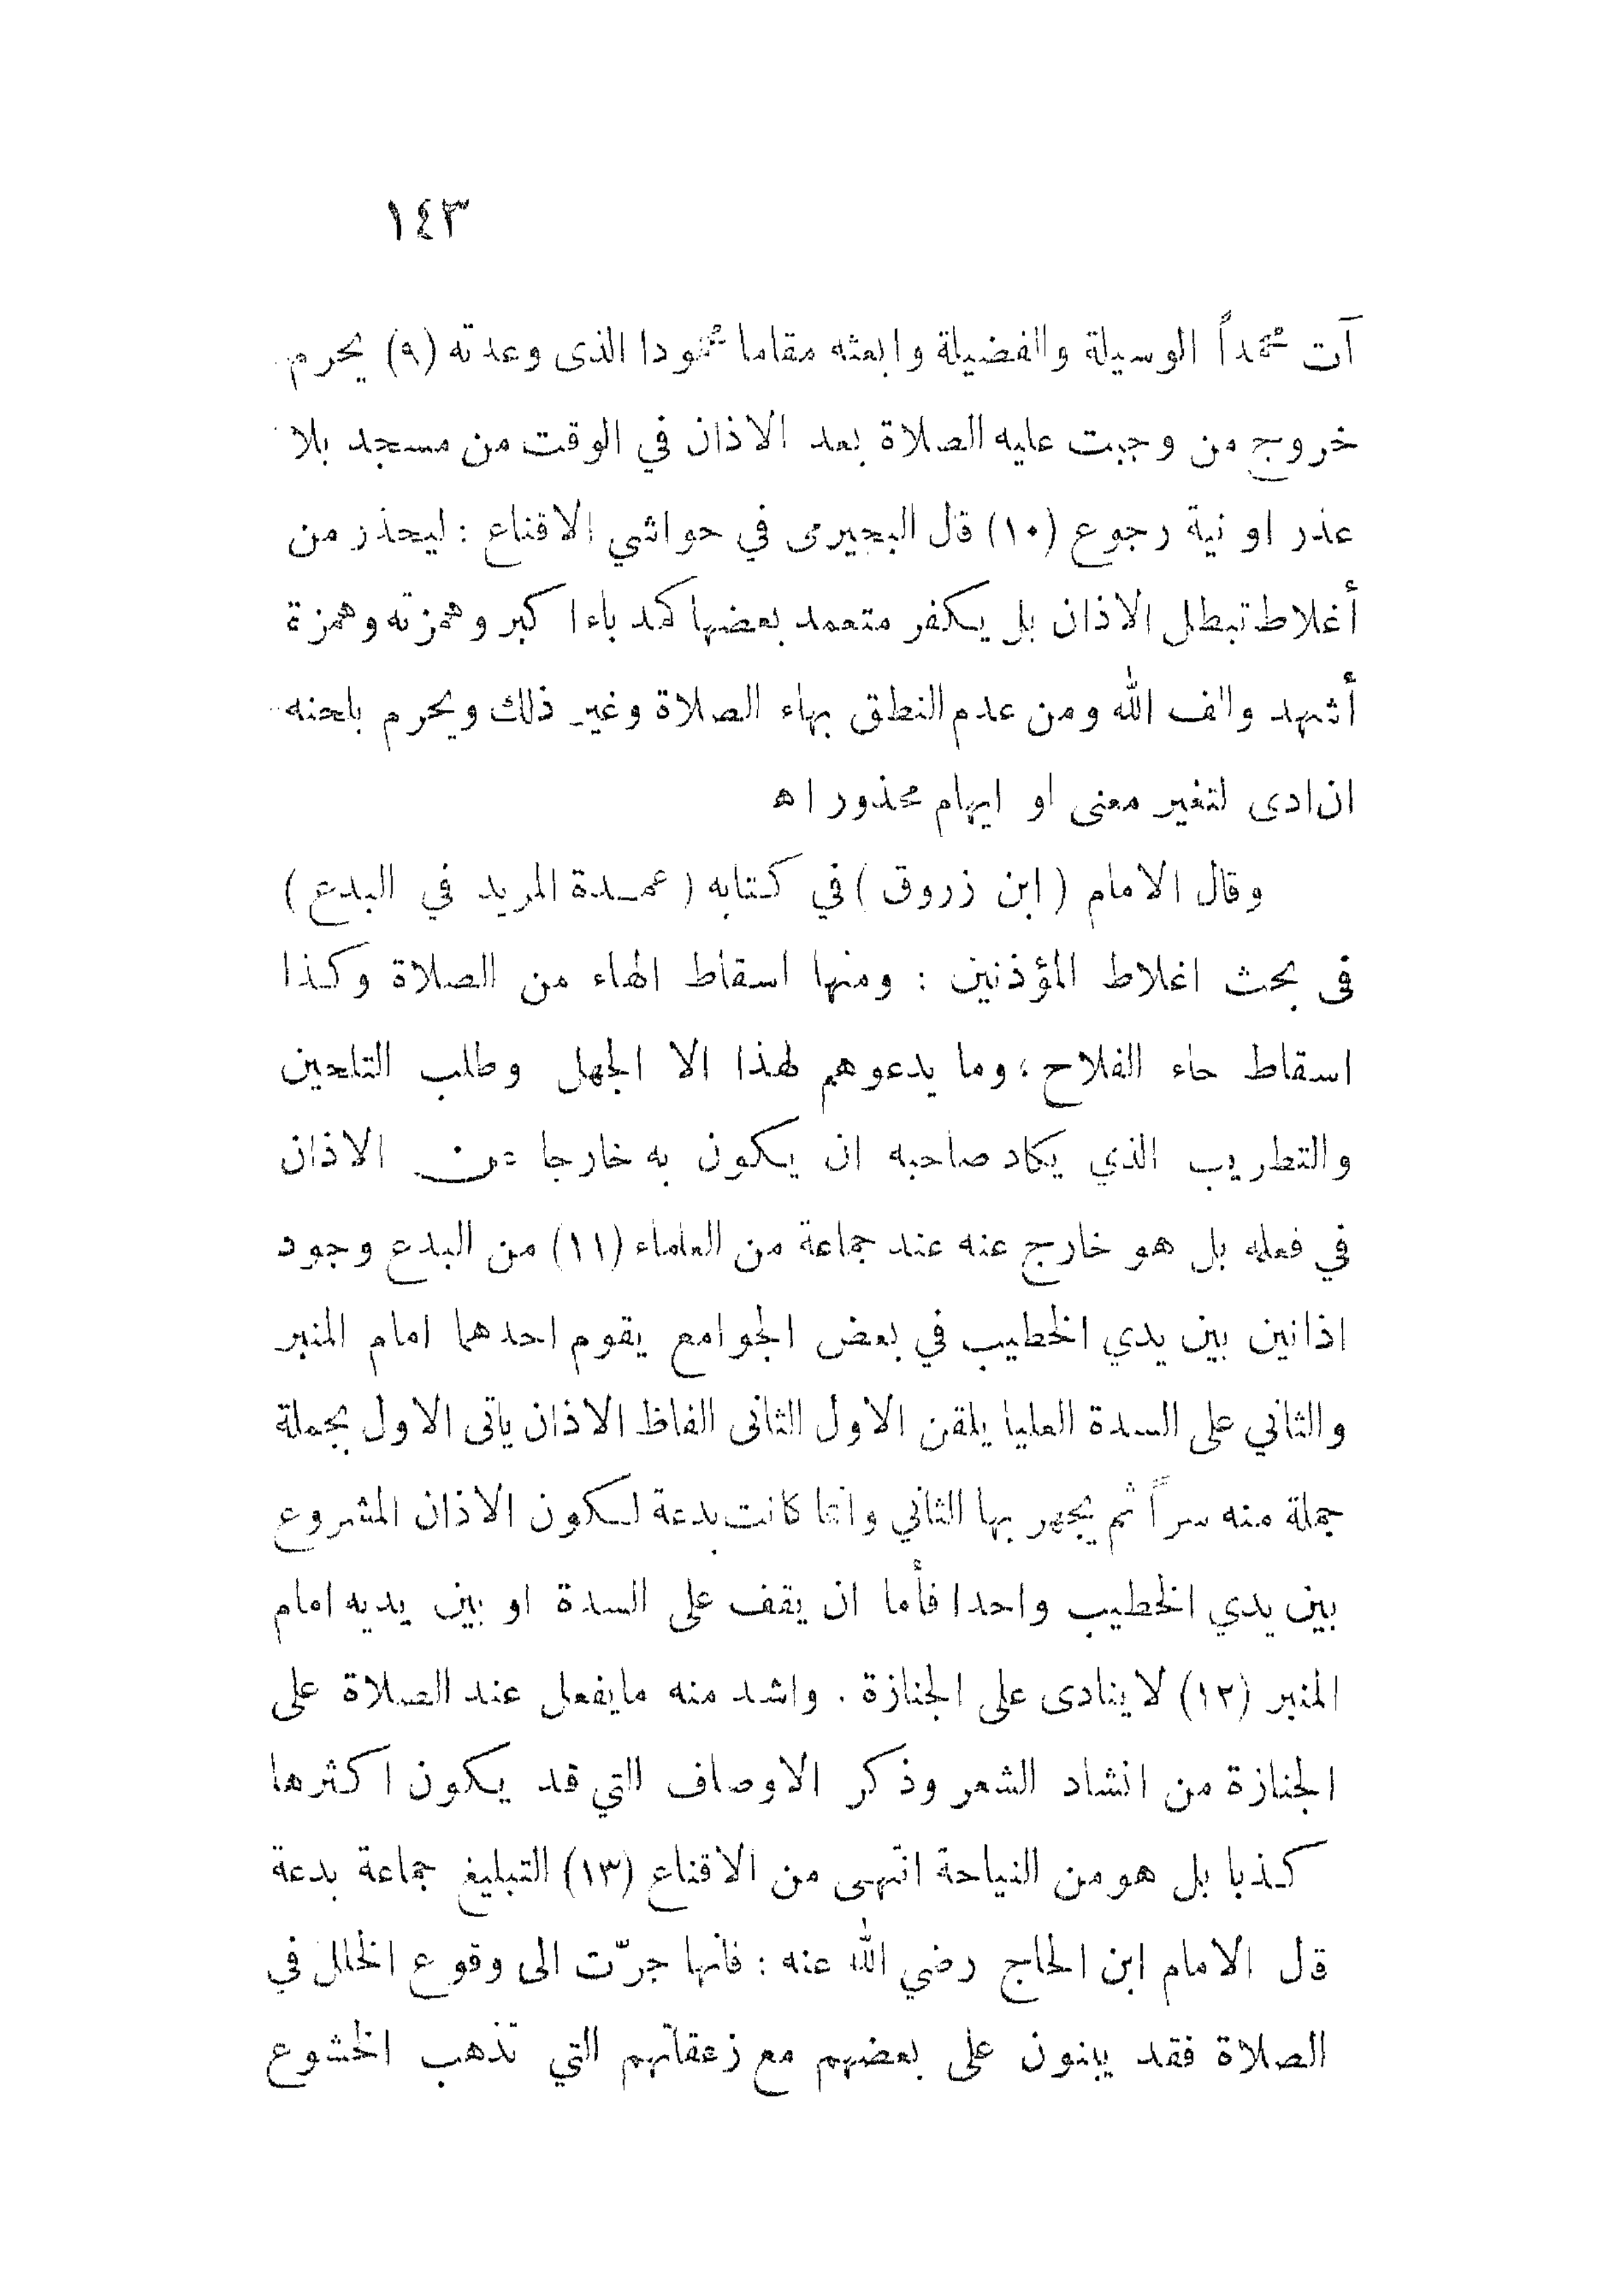 ١٤٣
آت محمداً الوسيلة والفضيلة وابعثه مقاما محمودا الذى وعدته (٩) يحرم
خروج من وجبت عليه الصلاة بعد الاذان في الوقت من مسجد بلا
عذر او نية رجوع (١٠) قال البجيرمى في حواشي الاقناع : ليحذر من
أغلاط تبطل الاذان بل يكفر متعمد بعضها كمد باء اكبر وهمزته وهمزة
أشهد والف الله ومن عدم النطق بهاء الصلاة وغير ذلك ويحرم بلحنه
ان ادى لتغير معنى او ايهام محذور اهـ
وقال الامام ( ابن زروق ) في كتابه ( عمدة المريد في البدع )
فى بحث اغلاط المؤذنين : ومنها اسقاط الهاء من الصلاة وكذا
اسقاط حاء الفلاح ، وما يدعوهم لهذا الا الجهل وطلب التلحين
والتطريب الذي يكاد صاحبه ان يكون به خارجا عن الاذان
في فعله بل هو خارج عنه عند جماعة من العلماء (١١) من البدع وجود
اذانين بين يدي الخطيب في بعض الجوامع يقوم احدهما امام المنبر
والثاني على السدة العليا يلقن الاول الثانى الفاظ الاذان يأتى الاول بجملة
جملة منه سراً ثم يجهر بها الثاني وانما كانت بدعة لكون الاذان المشروع
بين يدي الخطيب واحدا فأما ان يقف على السدة او بين يديه امام
المنبر (١٢) لا ينادى على الجنازة . واشد منه مايفعل عند الصلاة على
الجنازة من انشاد الشعر وذكر الاوصاف التي قد يكون اكثرها
كذبا بل هو من النياحة انتهى من الاقناع (١٣) التبليغ جماعة بدعة
قال الامام ابن الحاج رضي الله عنه : فانها جرّت الى وقوع الخلل في
الصلاة فقد يبنون على بعضهم مع زعقاتهم التي تذهب الخشوع